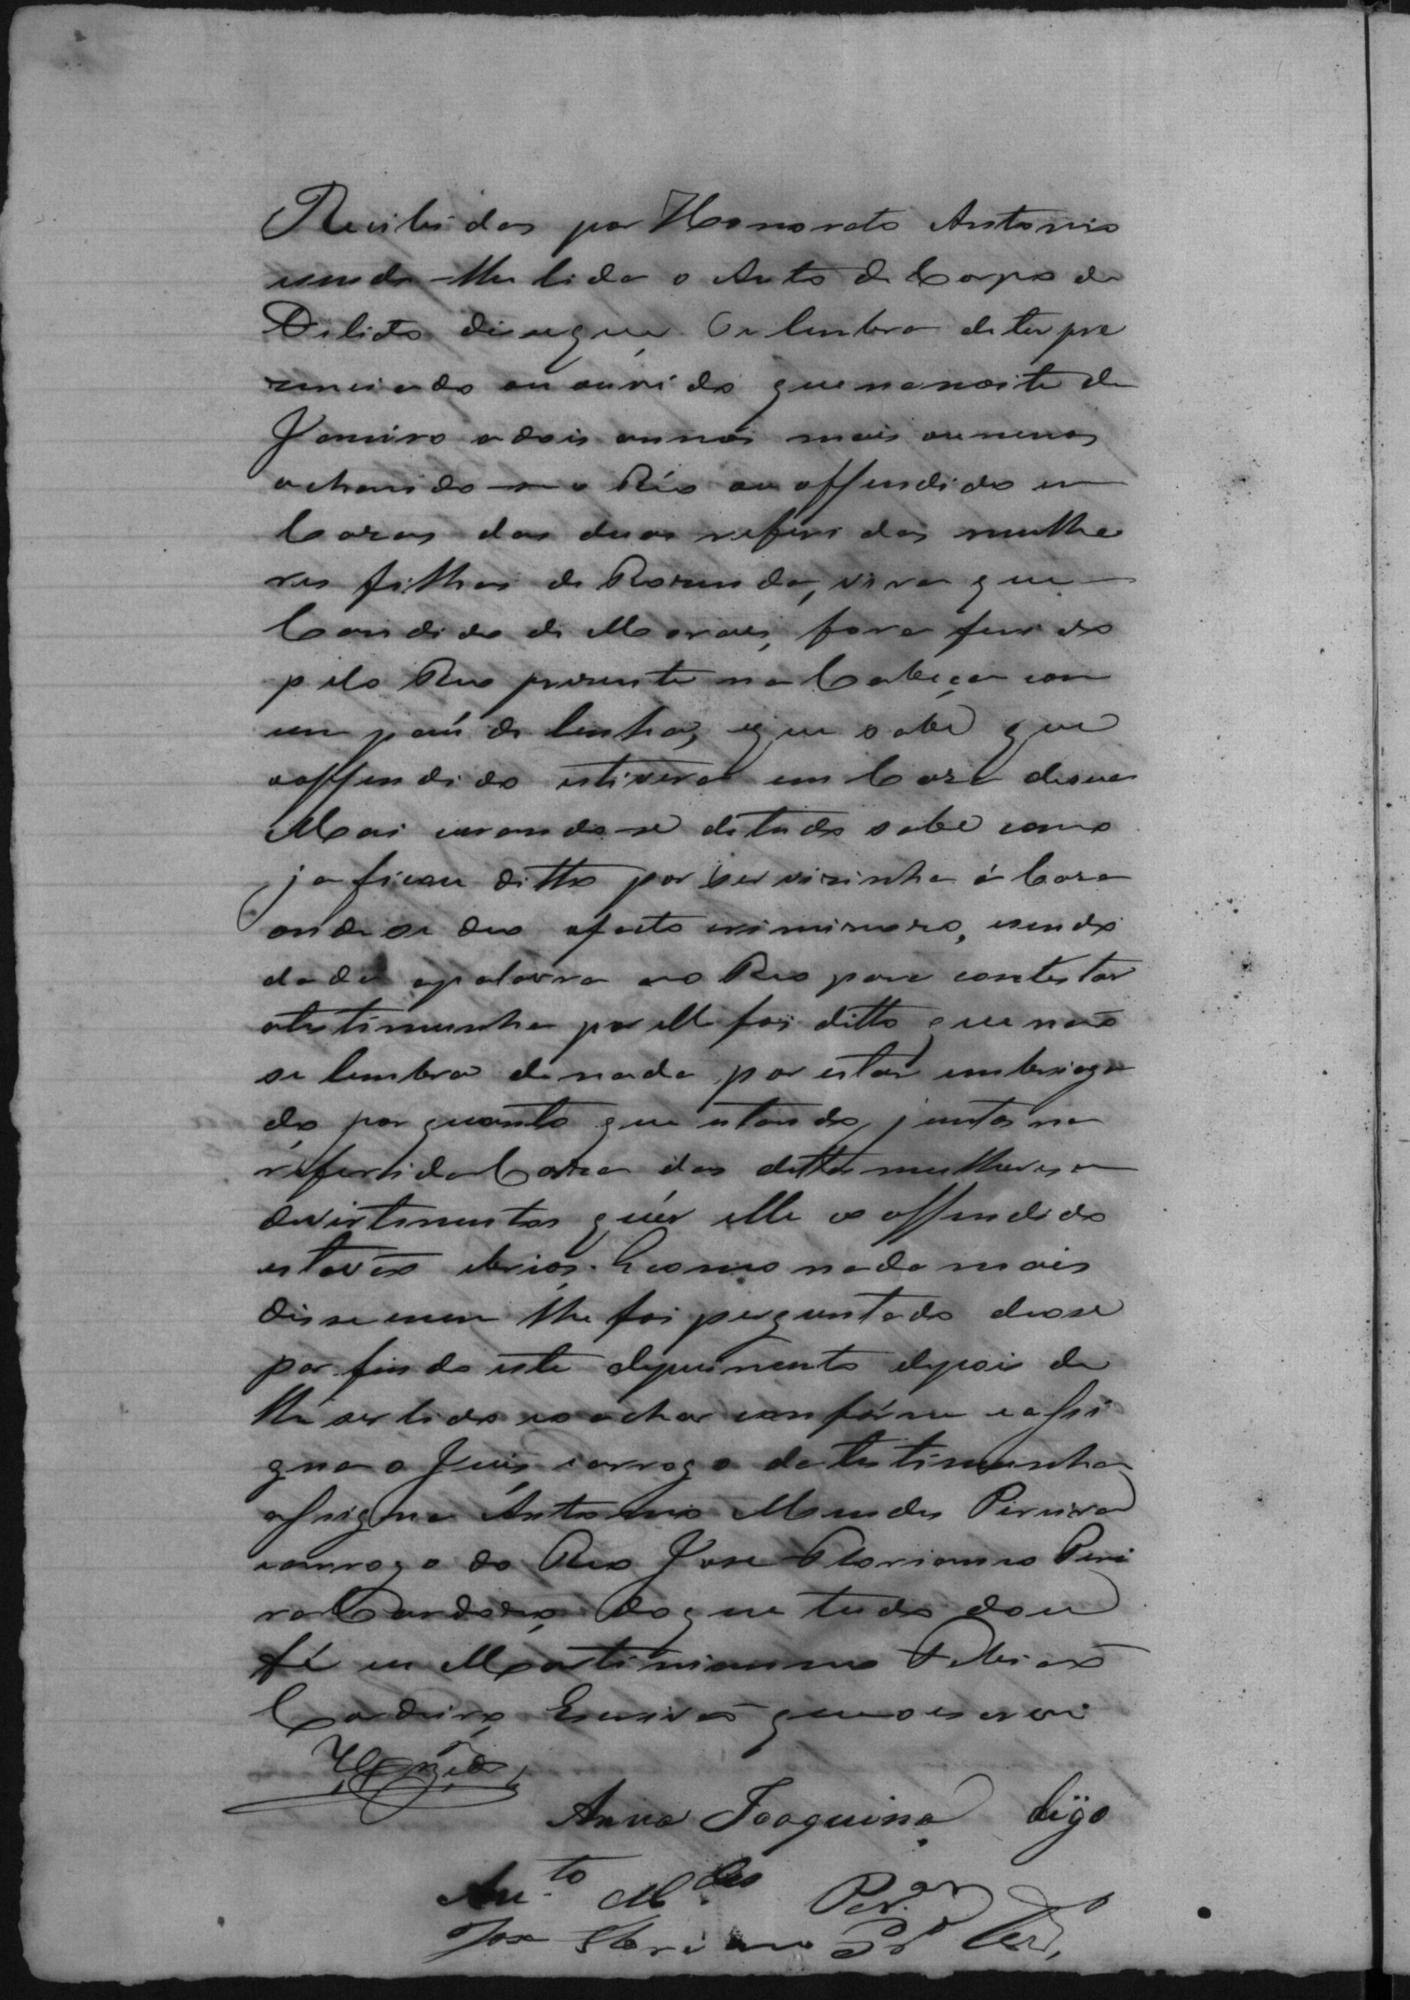 Recibidas por Honorato Antonio
sendo-lhe lido o Auto de Corpo de
Delicto disse que se lembra de ter pre
senciado ou ouvido que na noite de
Janeiro a dois annos mais ou menos
achando-se o Réo ou offendido em
Casas das duas referidas mulhe
res filhas de Rosenda, vira que
Candido de Moraes, fora ferido
pelo Reo presente na Cabeça com
um páu de lenha, e que sabe que
o offendido estivera em Casa de sua
Mai curando-se de tudo sabe como
ja ficou ditto por ser visinha á Casa
onde se deu o facto criminoso, e sendo
dada a palavra ao Reo para contestar
a testimunha por elle foi ditto que naõ
se lembra de nada por estar embriaga
do por quanto que estando juntos na
referida Casa das dittas mulheres em
devirtimentos quér elle e o offendido
estavaõ ebrios. E como nada mais
disse nem lhe foi perguntado deo-se
por findo este depuimento depois de
lhe ser lido e o achar confórme e assi
gna o Juis, e a rogo da testimunha
assigna Antonio Mendes Pereira
e a rogo do Reo Jose Floriano Perei
ra Cardoso, do que tudo dou
fé eu Martinianno Fabiaõ
Cordeiro, Escrivaõ que o escrevi
Anna Joaquina digo
An.to M.des Per.a
Jose Floriano P.ra